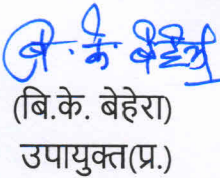 बि. के. बेहेरा
(बि.के. बेहेरा)
उपायुक्त(प्र.)